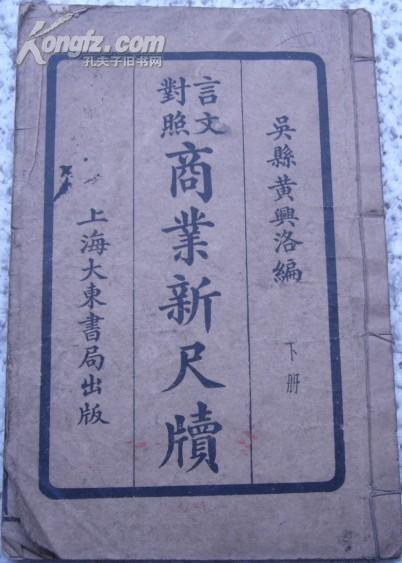 Kongfz.com
孔夫子旧书网
吳縣黃興洛編
下册
言文對照
商業新尺牘
上海大東書局出版